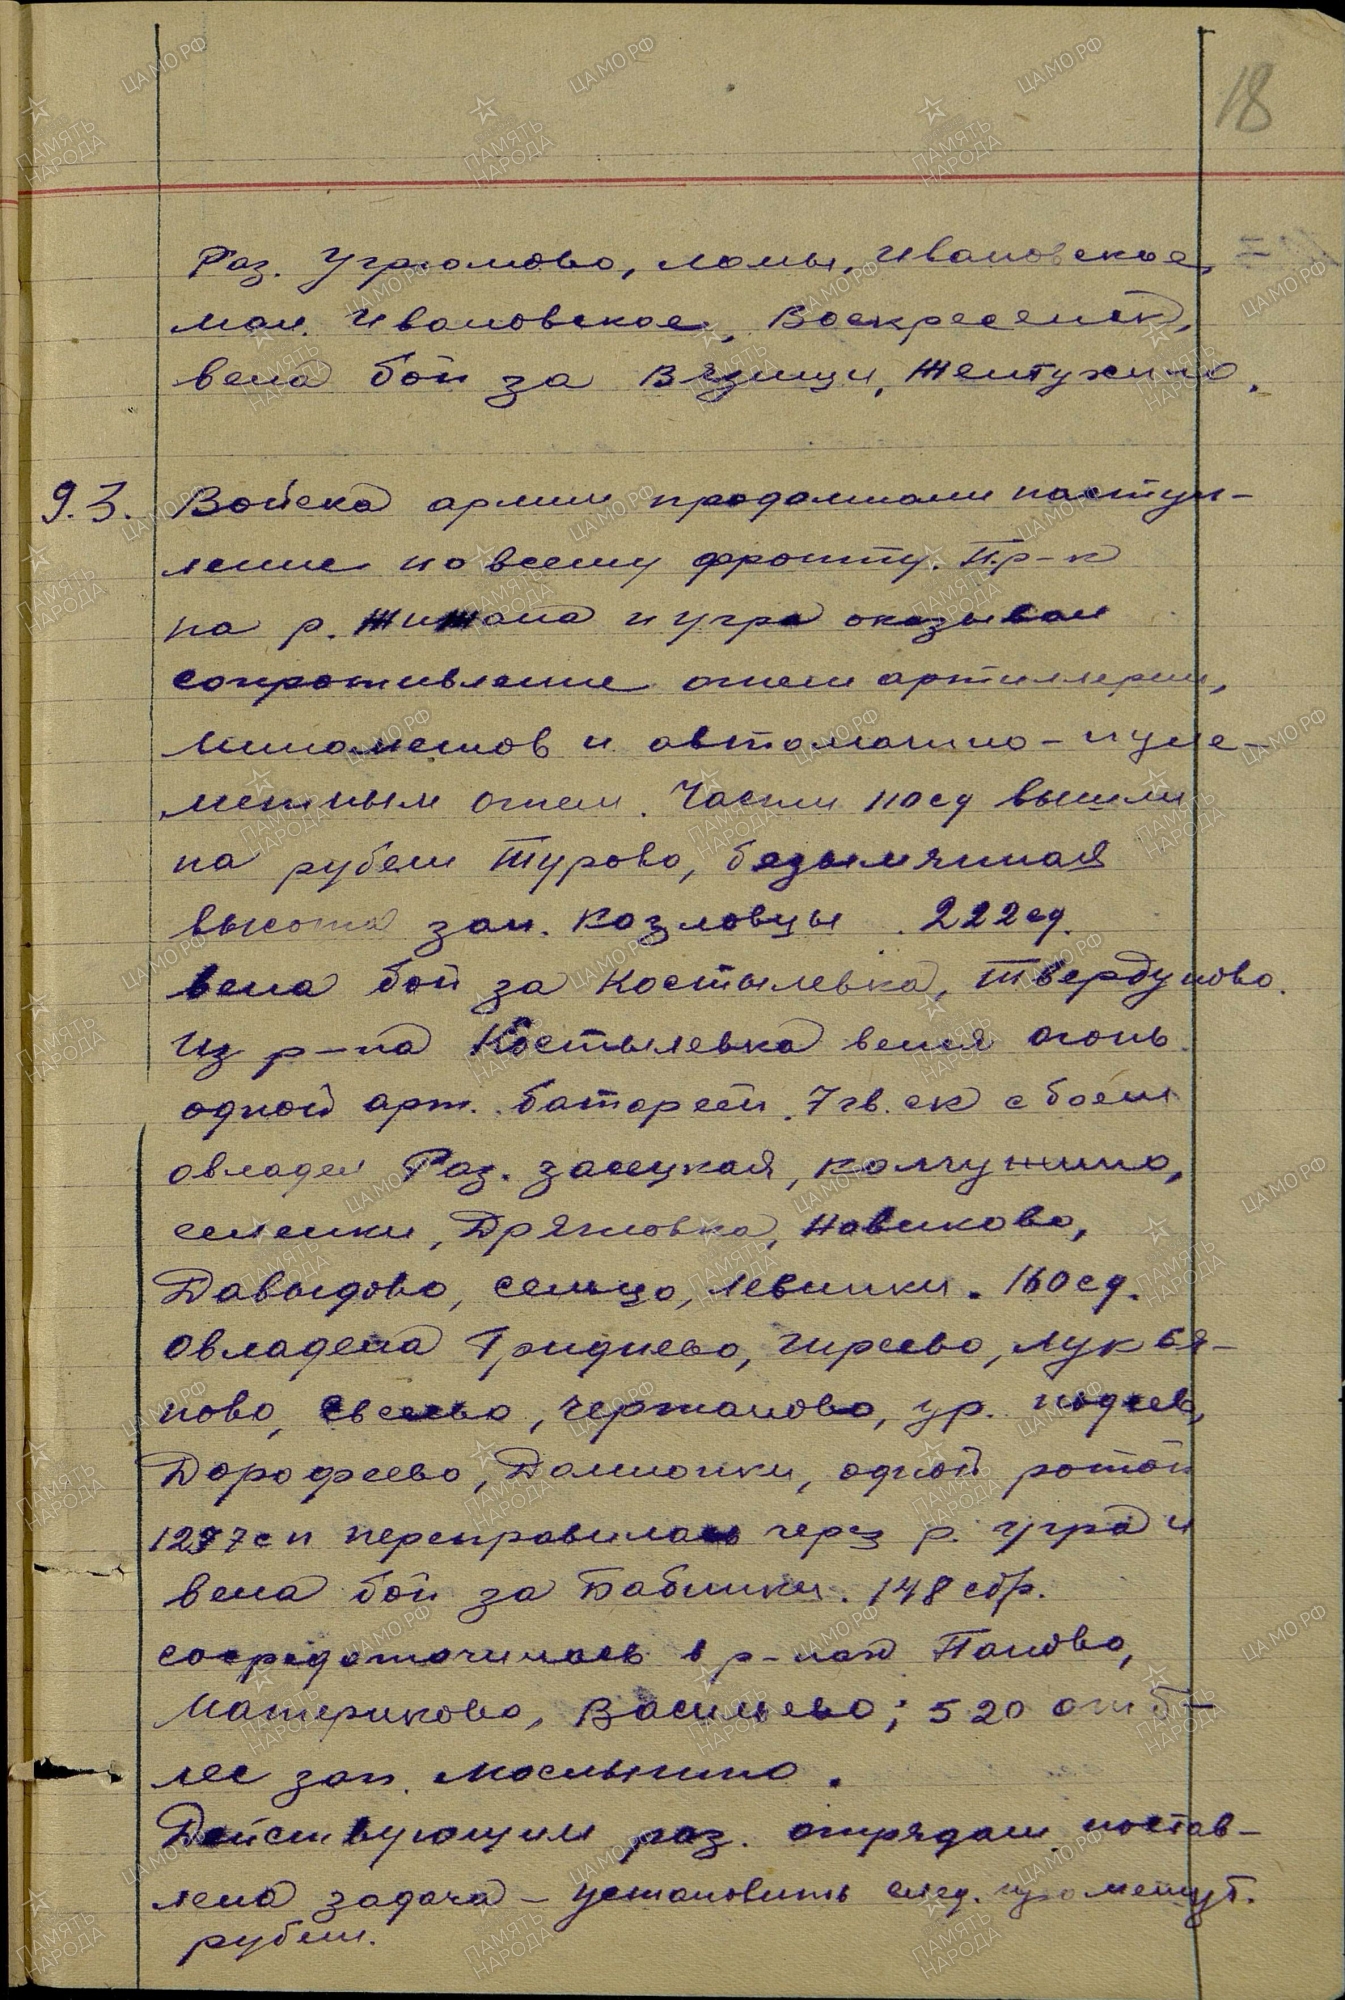 18
Раз. Угрюмово, Ломы, Ивановское,
мал. Ивановское, Воскресенск,
вела бой за Вязищи, Желтухино.
9.3. Войска армии продолжали наступ-
ление по всему фронту. Пр-к
на р. Жижала и Угра оказывал
сопротивление огнем артиллерии,
минометов и автоматно-пуле-
метным огнем. Части 110 сд вышли
на рубеж Турово, безымянная
высота зап. Козловцы. 222 сд.
вела бой за Костылевка, Твердуново.
Из р-на Костылевка велся огонь
одной арт. батареей. 7 гв. ск с боем
овладел Раз. Засецкая, Колчужино,
Семенки, Дряжловка, Новиково,
Давыдово, сельцо, Левинки. 160 сд.
Овладела Гриднево, Чиреево, Лукья-
ново, Евсеево, Чертаново, ур.
Дорофеево, одной ротой
1297 сп переправилась через р. Угра и
вела бой за Бабинки. 148 сбр.
сосредоточилась в р-не Паново,
Материково, Васильево; 520 отб-
лес зап. Маслынино.
Действующим раз. отрядам постав-
лена задача - установить след. промежут.
рубеж.
ЦАМО.РФ
ПАМЯТЬ
НАРОДА